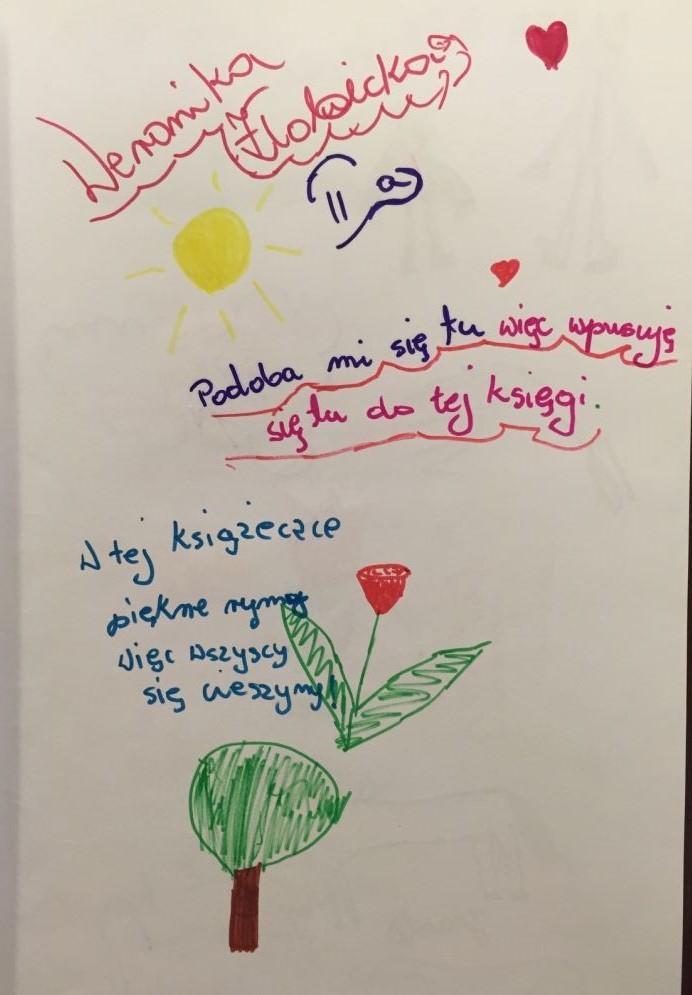 Weronika
Podoba mi się tu więc wpisuję
się tu do tej księgi.
W tej książeczce
piękne rymy
więc wszyscy
się cieszymy!